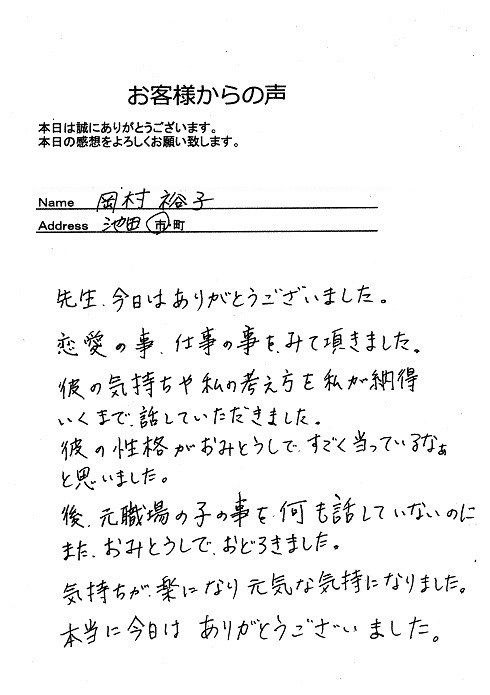 お客様からの声
本日は誠にありがとうございます。
本日の感想をよろしくお願い致します。
Name 岡村 裕子
Address 池田 市・町
先生、今日はありがとうございました。
恋愛の事、仕事の事を、みて頂きました。
彼の気持ちや私の考え方を私が納得
いくまで、話していただきました。
彼の性格がおみとうしで、すごく当っているなぁ
と思いました。
後、元職場の子の事を、何も話していないのに
また、おみとうしで、おどろきました。
気持ちが、楽になり元気な気持になりました。
本当に今日は ありがとうございました。